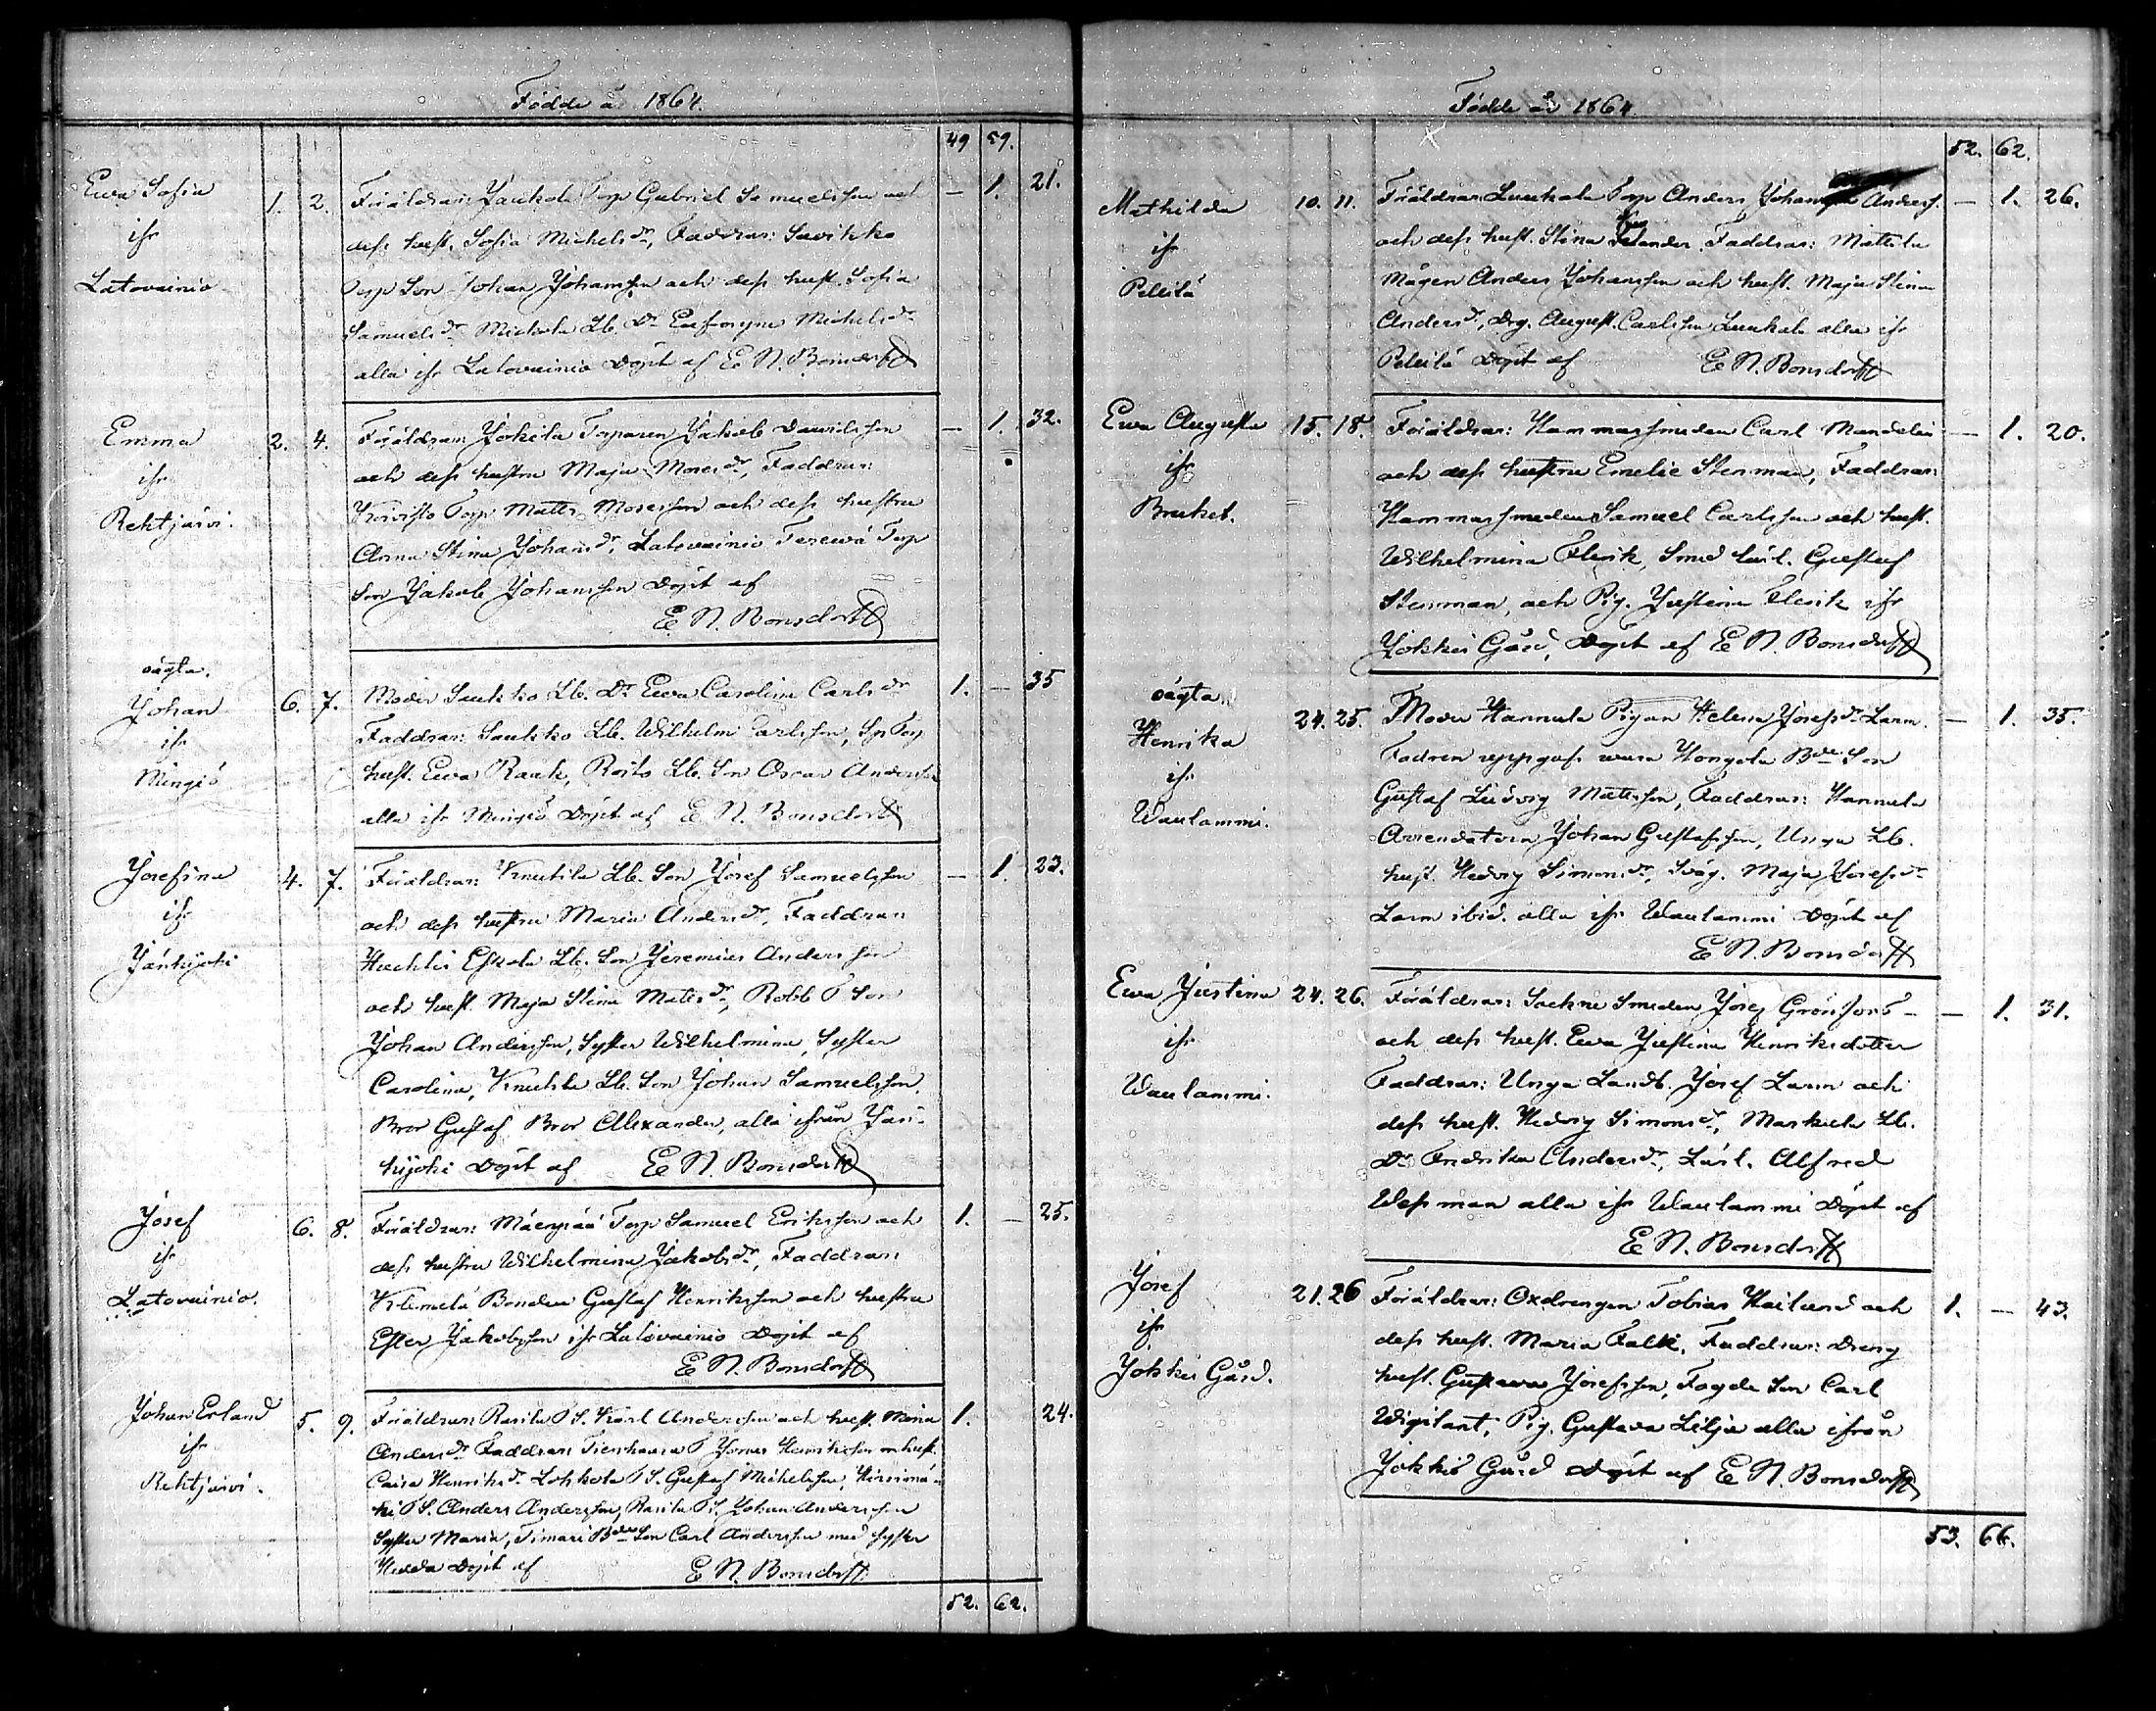 Födde år 1864.
49 59.
Ewa Sofia
ifr
Latovainio
1. 2.
Föräldrar: Torp Gabriel Samuelsson och
dess hust. Sofia Michelsdr, Faddrar: Savikko
Torp Son Johan Johansson och dess hust. Sofia
Samuelsdr Mickola Lb. Dr Michelsdr
alla ifr Latovainio Döpt af E. N. Bonsdorff
— 1. 21.
Emma
ifr
Rehtijärvi.
2. 4.
Föräldrar: Jokila Torparen Jakob Davidsson
och dess hustru Maja Mosesdr, Faddrar:
Torp Matts Mosesson och dess hustru
Anna Stina Johansdr, Latovainio Terewä Torp
Son Jakob Johansson Döpt af
E. N. Bonsdorff
— 1. 32.
oägta.
Johan
ifr
Mingiö
6. 7.
Moder Saukko Lb. Dr Ewa Carolina Carlsdr
Faddrar: Saukko Lb. Wilhelm Carlsson, Torp
hust. Ewa Rask, Roito Lb. Son Oscar Andersson
alla ifr Mingiö Döpt af E. N. Bonsdorff
1. — 35
Josefina
ifr
Jänhijoki
4. 7.
Föräldrar: Knuutila Lb. Son Josef Samuelsson
och dess hustru Maria Andersdr, Faddrar:
Huhtis Eskola Lb. Son Jeremias Andersson
och hust. Maja Stina Matsdr, Robb T Son
Johan Andersson, Syster Wilhelmina, Syster
Carolina, Knuutila Lb. Son Johan Samuelsson.
Bror Gustaf Bror Alexander, alla ifrån Jän-
hijoki Döpt af E. N. Bonsdorff
— 1. 23.
Josef
ifr
Latovainio.
6. 8.
Föräldrar: Mäenpää Torp Samuel Eriksson och
dess hustru Wilhelmina Jakobsdr, Faddrar:
Klemelä Bonden Gustaf Henriksson och hustru
Ester Jakobsson ifr Latovainio Döpt af
E. N. Bonsdorff
1. — 25.
Johan Erland
ifr
Rehtijärvi.
5. 9.
Föräldrar: Rasila T S. Karl Andersson och hust. Mina
Andersdr Faddrar: Tienhaara T Jonas Henriksson m hust.
Caisa Henriksdr Lokkola T S. Gustaf Michelsson, Hirsimä-
ki T S. Anders Andersson, Rasila T S. Johan Andersson
Syster Maria, Timari Bde Son Carl Andersson med syster
Hedda Döpt af E. N. Bonsdorff
1. 24.
52. 62.
Födde år 1864.
52. 62.
Mathilda
ifr
Pellilä
10. 11.
Föräldrar: Luukala Torp Anders Anderss.
och dess hust. Stina Faddrar: Mattila
Mågen Anders Johansson och hust. Maja Stina
Andersdr, Drg. August Carlsson Luukala alla ifr
Pellilä Döpt af E. N. Bonsdorff
— 1. 26.
Ewa Augusta
ifr
Bruket.
15. 18.
Föräldrar: Hammarsmeden Carl Mandelin
och dess hustru Emelie Stenman, Faddrar:
Hammarsmeden Samuel Carlsson och hust.
Wilhelmina Flenk, Smed lärl. Gustaf
Stenman, och Pig. Justina Flenk ifr
Jokkis Gård, Döpt af E. N. Bonsdorff
— 1. 20.
oägta.
Henrika
ifr
Waulammi.
24. 25.
Moder Hannula Pigan Helena Josefsdr Larm.
Fadren uppgafs wara Hongola Bde Son
Gustaf Ludvig Mattsson, Faddrar: Hannula
Arrendatorn Johan Gustafsson, Unga Lb.
hust. Hedvig Simonsdr, Swäg. Maja Josefsdr
Larm ibid. alla ifr Waulammi Döpt af
E. N. Bonsdorff
— 1. 35.
Ewa Justina
ifr
Waulammi.
24. 26.
Föräldrar: Sockne Smeden Josef Grönfors
och dess hust. Ewa Justina Henriksdotter
Faddrar: Unga Landb. Josef Larm och
dess hust. Hedvig Simonsdr, Markula Lb.
Dr Fredrika Andersdr, Lärl. Alfred
Wessman alla ifr Waulammi Döpt af
E. N. Bonsdorff
— 1. 31.
Josef
ifr
Jokkis Gård.
21. 26
Föräldrar: Oxdrengen Tobias Hailand och
dess hust. Maria Falk, Faddrar: Dreng
hust. Gustava Josefsson, Fogde Son Carl
Wigilant, Pig. Gustava Lilja alla ifrån
Jokkis Gård Döpt af E. N. Bonsdorff
1. — 43.
53. 66.